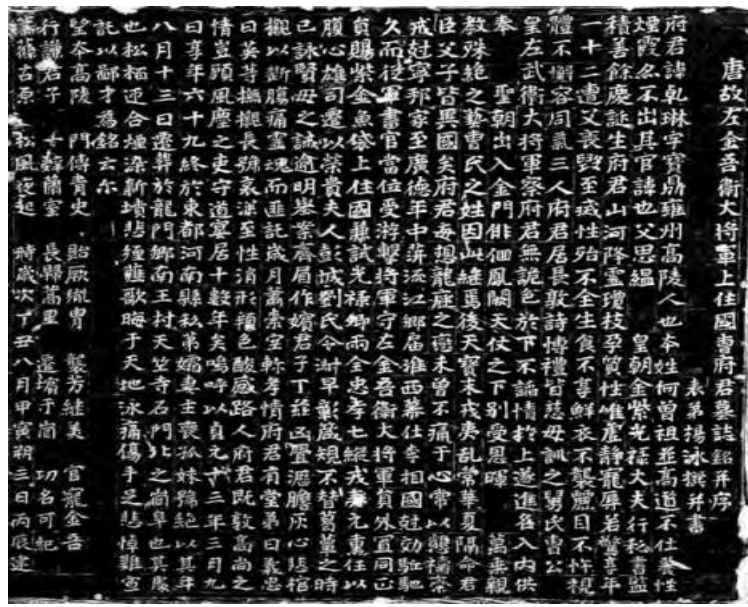 唐故左金吾衛大將軍上柱國曹府君墓誌銘并序
表弟楊冰撰并書
府君諱乾琳字寶鼎雍州高陵人也本姓何曾祖並高道不仕養性
煙霞名不出其官諱也父思縕 皇朝金紫光祿大夫行秘書監
積善餘慶誕生府君山河降靈瓊枝孕質性唯虛靜寵辱若驚享年
一十二遭父喪毀至滅性殆不全生食不享鮮衣不襲麗目不忤視
體不懈容同氣三人府君居長敦詩博禮皆慈母訓之舅氏曹公
皇左武衛大將軍祭府君無詭色於下不諂情於上遂進名入內供
奉 聖朝出入金門徘徊鳳闕天仗之下別受恩暉 萬乘親
教殊絕之藝曹氏之姓因此繼焉後天寶末戎夷亂常華夏隔命君
臣父子皆異國矣府君每想龍庭之 未曾不痛于心常以
戒尅寧邦家至廣德年中 流江鄉屆淮西幕仕李相國尅効駈馳
久而從軍書官當位受游擊將軍守左金吾衛大將軍員外置同正
員賜紫金魚袋上柱國兼試光祿卿而全忠孝七縱戎 元 任以
腹心雄司遷以榮貴夫人彭城劉氏令淑早彰箴規不替葛蘲之時
已詠賢母之誠逾明舉案齊眉作嬪君子丁茲凶舋瀝膽灰心悲棺
櫬以斷腹痛靈魂而匪託歲月萬 室 孝情府君有堂弟曰義忠
曰英 撫櫬長號哀深至性消形 色酸感路人府君既敦高尚之
情豈顧風塵之吏守道 居十數年矣嗚呼以貞元十三年三月九
日享年六十九終於東都河南縣私第孀妻主喪孤妹號絕以其年
八月十三日遷葬於龍門鄉南王村天竺寺石門北之尚 也其
也松栖 合煙深新墳悲 薤歌晦于天地泳痛傷手足悲悼難宣
託以鄙才為銘云尒
望本高陵 門傳青史 貽厥 胄 製芳繼美 官寵金吾
行謙君子 蘭室 長歸蒿里 于 功名可紀
古原 松風夜起 時歲次丁丑八月甲寅朔三日丙辰建